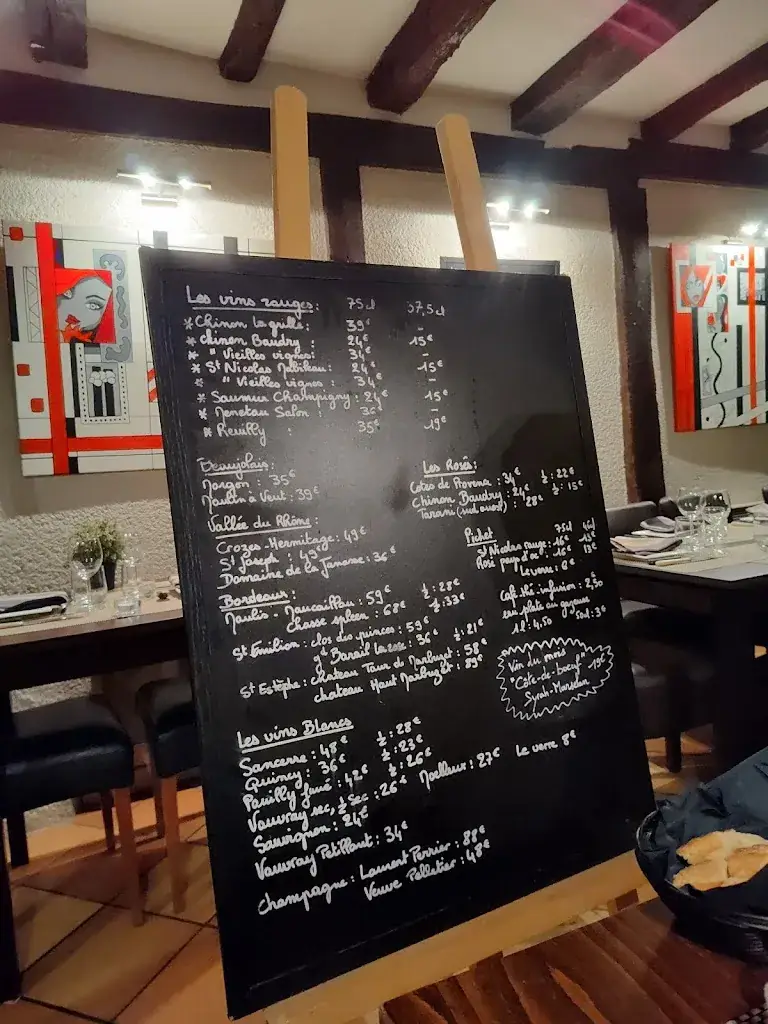 Les vins rouges: 75cl 37,5cl
* Chinon la grille: 39€ -
* chinon Baudry: 24€ 15€
* " Vieilles vignes: 34€ -
* St Nicolas Mabileau: 24€ 15€
* " Vieilles vignes: 34€ -
* Saumur Champigny: 24€ 15€
* Menetou Salon: 36€ -
* Reuilly: 35€ 19€
Beaujolais:
Morgon: 35€
Moulin à Vent: 39€
Vallée du Rhône:
Crozes-Hermitage: 49€
St Joseph: 49€
Domaine de la Janasse: 36€
Bordeaux:
Moulis - Maucaillou: 59€ ½: 28€
Chasse spleen: 68€ ½: 33€
St Emilion: clos des quinces: 59€
gd Barail La rose: 36€ ½: 21€
St Estèphe: chateau Tour de Marbuzet: 58€
chateau Haut Marbuzet: 89€
Les Rosés:
Cotes de Provence: 34€ ½: 22€
Chinon Baudry: 24€ ½: 15€
Tarani (sud ouest): 28€
Pichet 75cl
St Nicolas rouge: 16€
Rosé pays d'oc: 16€
Le verre:
Café thé infusion: 2,50
eau plate ou gazeuse
1l: 4.50 50cl: 3€
Vin du mois
"Cote-de-boeuf" 19€
Syrah-Marselan
Les vins Blancs
Sancerre: 48€ ½: 28€
Quincy: 36€ ½: 23€
Pouilly fumé: 42€ ½: 26€
Vouvray sec, ½ sec: 26€ Moelleux: 27€ Le verre 8€
Sauvignon: 24€
Vouvray Petillant: 34€
Champagne: Laurent Perrier: 88€
Veuve Pelletier: 48€